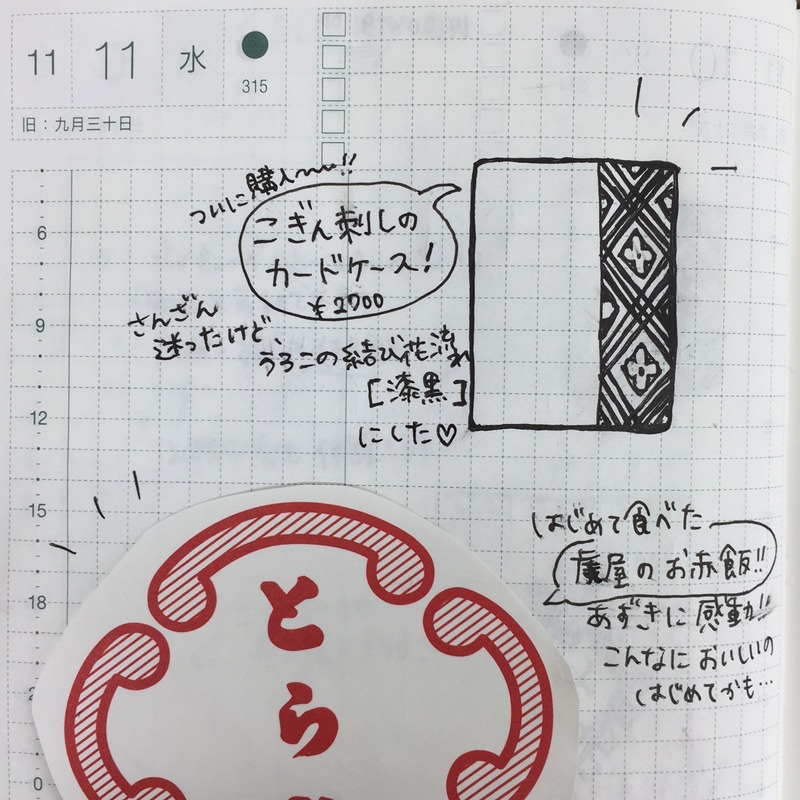 11 11 水
315
旧：九月三十日
ついに購入〜〜!!
こぎん刺しの
カードケース!
¥2700
さんざん
迷ったけど、
うろこの結び花流れ
[漆黒]
にした♡
6
9
12
15
18
0
はじめて食べた
虎屋のお赤飯!!
あずきに感動!!
こんなにおいしいの
はじめてかも…
とら